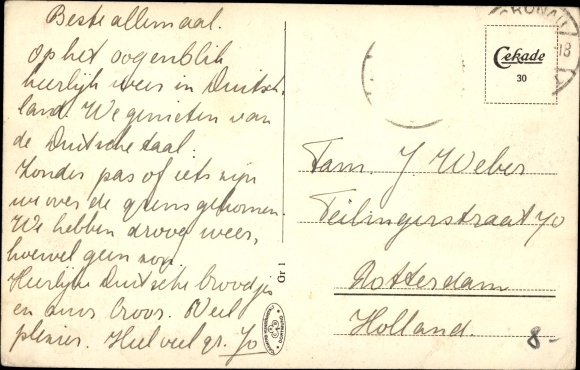 Beste allemaal.
Op het oogenblik
heerlijk weer in Duitsch-
land. We genieten van
de Duitsche taal.
Zonder pas of iets zijn
we over de grens gekomen.
We hebben droog weer,
hoewel geen zon.
Heerlijke Duitsche broodjes
en ons voor. Veel
plezier. Heel veel gr. Jo
GRONAU
18
Cekade
30
Gr 1
Fam. J. Weber
Teilingerstraat 70
Rotterdam
Holland.
8-